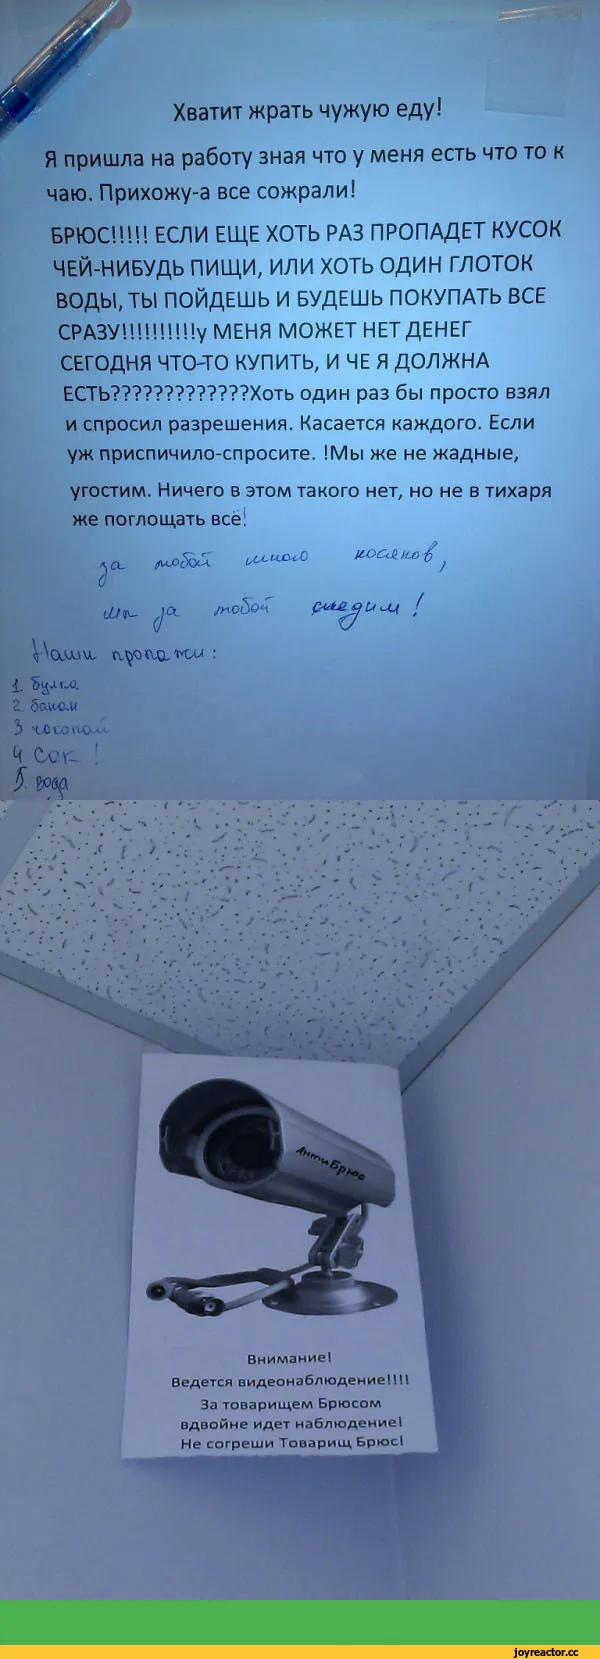 Хватит жрать чужую еду!
Я пришла на работу зная что у меня есть что то к
чаю. Прихожу-а все сожрали!
БРЮС!!!!! ЕСЛИ ЕЩЕ ХОТЬ РАЗ ПРОПАДЕТ КУСОК
ЧЕЙ-НИБУДЬ ПИЩИ, ИЛИ ХОТЬ ОДИН ГЛОТОК
ВОДЫ, ТЫ ПОЙДЕШЬ И БУДЕШЬ ПОКУПАТЬ ВСЕ
СРАЗУ!!!!!!!!!!у МЕНЯ МОЖЕТ НЕТ ДЕНЕГ
СЕГОДНЯ ЧТО-ТО КУПИТЬ, И ЧЕ Я ДОЛЖНА
ЕСТЬ?????????????Хоть один раз бы просто взял
и спросил разрешения. Касается каждого. Если
уж приспичило-спросите. !Мы же не жадные,
угостим. Ничего в этом такого нет, но не в тихаря
же поглощать всё!
за тобой много косяков,
мы за тобой следим!
Наши пропажи:
1. булка
2. банан
3 чокопай
4 Сок !
5. вода
АнтиБрюс
Внимание!
Ведется видеонаблюдение!!!!
За товарищем Брюсом
вдвойне идет наблюдение!
Не согреши Товарищ Брюс!
joyreactor.cc